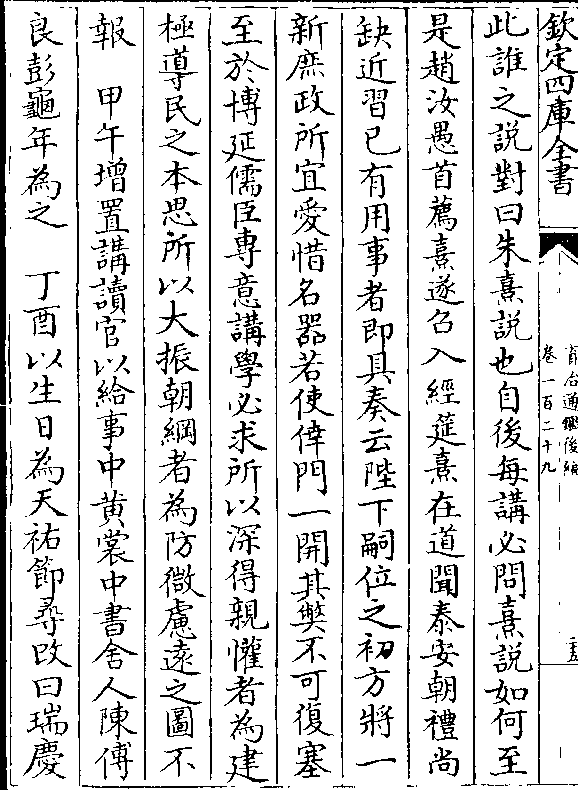 欽定四庫全書
資治通鑑後編
卷一百二十九
十五
此誰之説對曰朱熹説也自後每講必問熹説如何至
是趙汝愚首薦熹遂召入經筵熹在道聞泰安朝禮尚
缺近習已有用事者即具奏云陛下嗣位之初方將一
新庶政所宜愛惜名器若使倖門一開其獘不可復塞
至於博延儒臣專意講學必求所以深得親懽者為建
極導民之本思所以大振朝綱者為防微慮遠之圖不
報　甲午增置講讀官以給事中黄裳中書舍人陳傅
良彭龜年為之　丁酉以生日為天祐節尋改曰瑞慶